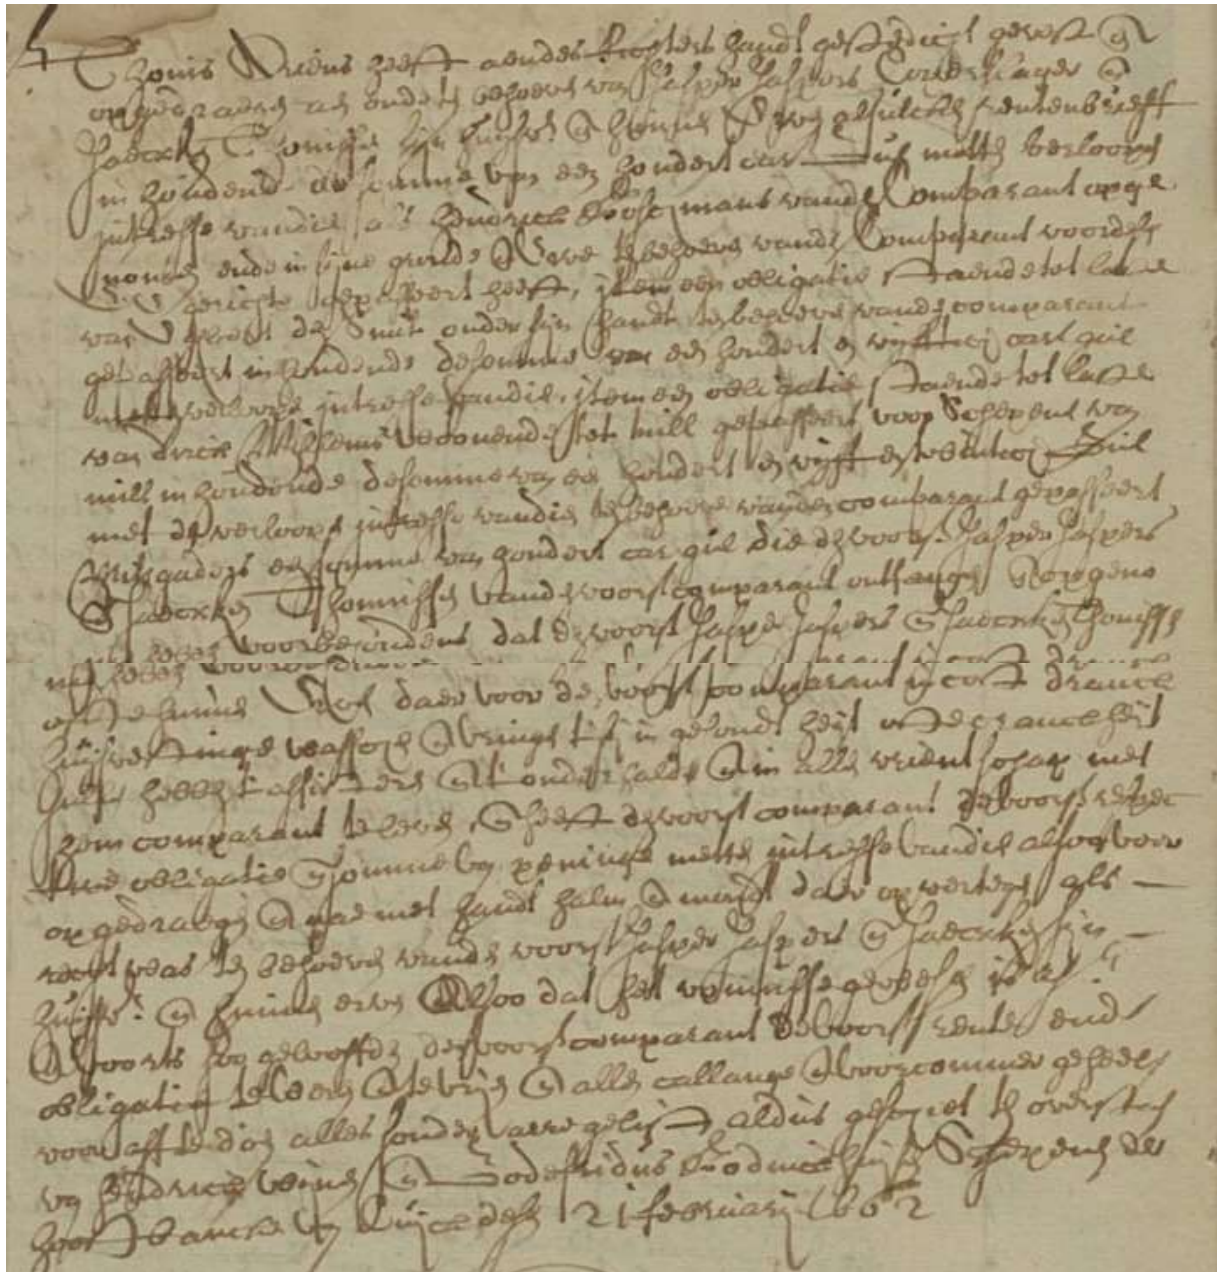 Thonis Driens heeft aendes Richters handt gestedicht geweest en
opgedraegen aen ende tot behoeve van Jasper Jaspers Coeverslager en
Jaecxken Thonissen sijn huijsfr: en hunne Erve alsulcken rentenbrieff
in houdende de somme van een hondert car gul metten verloopen
intresse van die als Hendrick mans vande Comparant opge
nomen ende in sijne qualite ten behoeve vande Comparant voor den
Gerichte gepasseert heeft, item een obligatie staende tot laste
van de Smit onder sijn handt ten behoeve vande comparant
gepasseert inhoudende de somme van een hondert en vijfftich carl gul
mette verloopen intresse van die, item een obligatie staende tot laste
van Dirck Willems woonende tot Mill gepasseert voor Schepenen van
Mill inhoudende de somme van een hondert en vijff en twentich gul
met de verloopen intresse van die ten behoeve vande comparant gepasseert
Mitsgaders een somme van hondert car gul die de voors Jasper Jaspers
en Jaecxken Thonissen vande voors comparant ontfangen en opgeno
men hebben voorbehoudens dat de voors Jasper Jaspers en Jaecxken Thonissen
ofte hunne Erven daer voor de voors comparant in cost dranck
huijsvestinge wasschen en wringe tsij in gesontheijt ofte cranckheijt
sullen hebben tassisteren en tonderhalden en in alle vrientschap met
hem comparant te leven, en heeft de voors comparant de voors respec
tive obligatie en somme van peninge mette intresse van die alsoo voor
opgedraegen en mae met handt halm en mondt daer op vertegen als
recht was ten behoeve vande voors Jasper Jaspers en Jaecxken sijn
huijsfr: en hunne erven Alsoo dat het vonnisse gewesen is als
Voorts soo geloeffden de voors comparant de voors rente ende
obligatien te weren en te vrijen en allen callange en voorcommer geheel
voor aff te doen alles sonder argelist aldus geschiet ten overstaen
van Hendrick en Godefridus Schepenen der
hooft bancke van Cuijck desen 21 februarij 1662